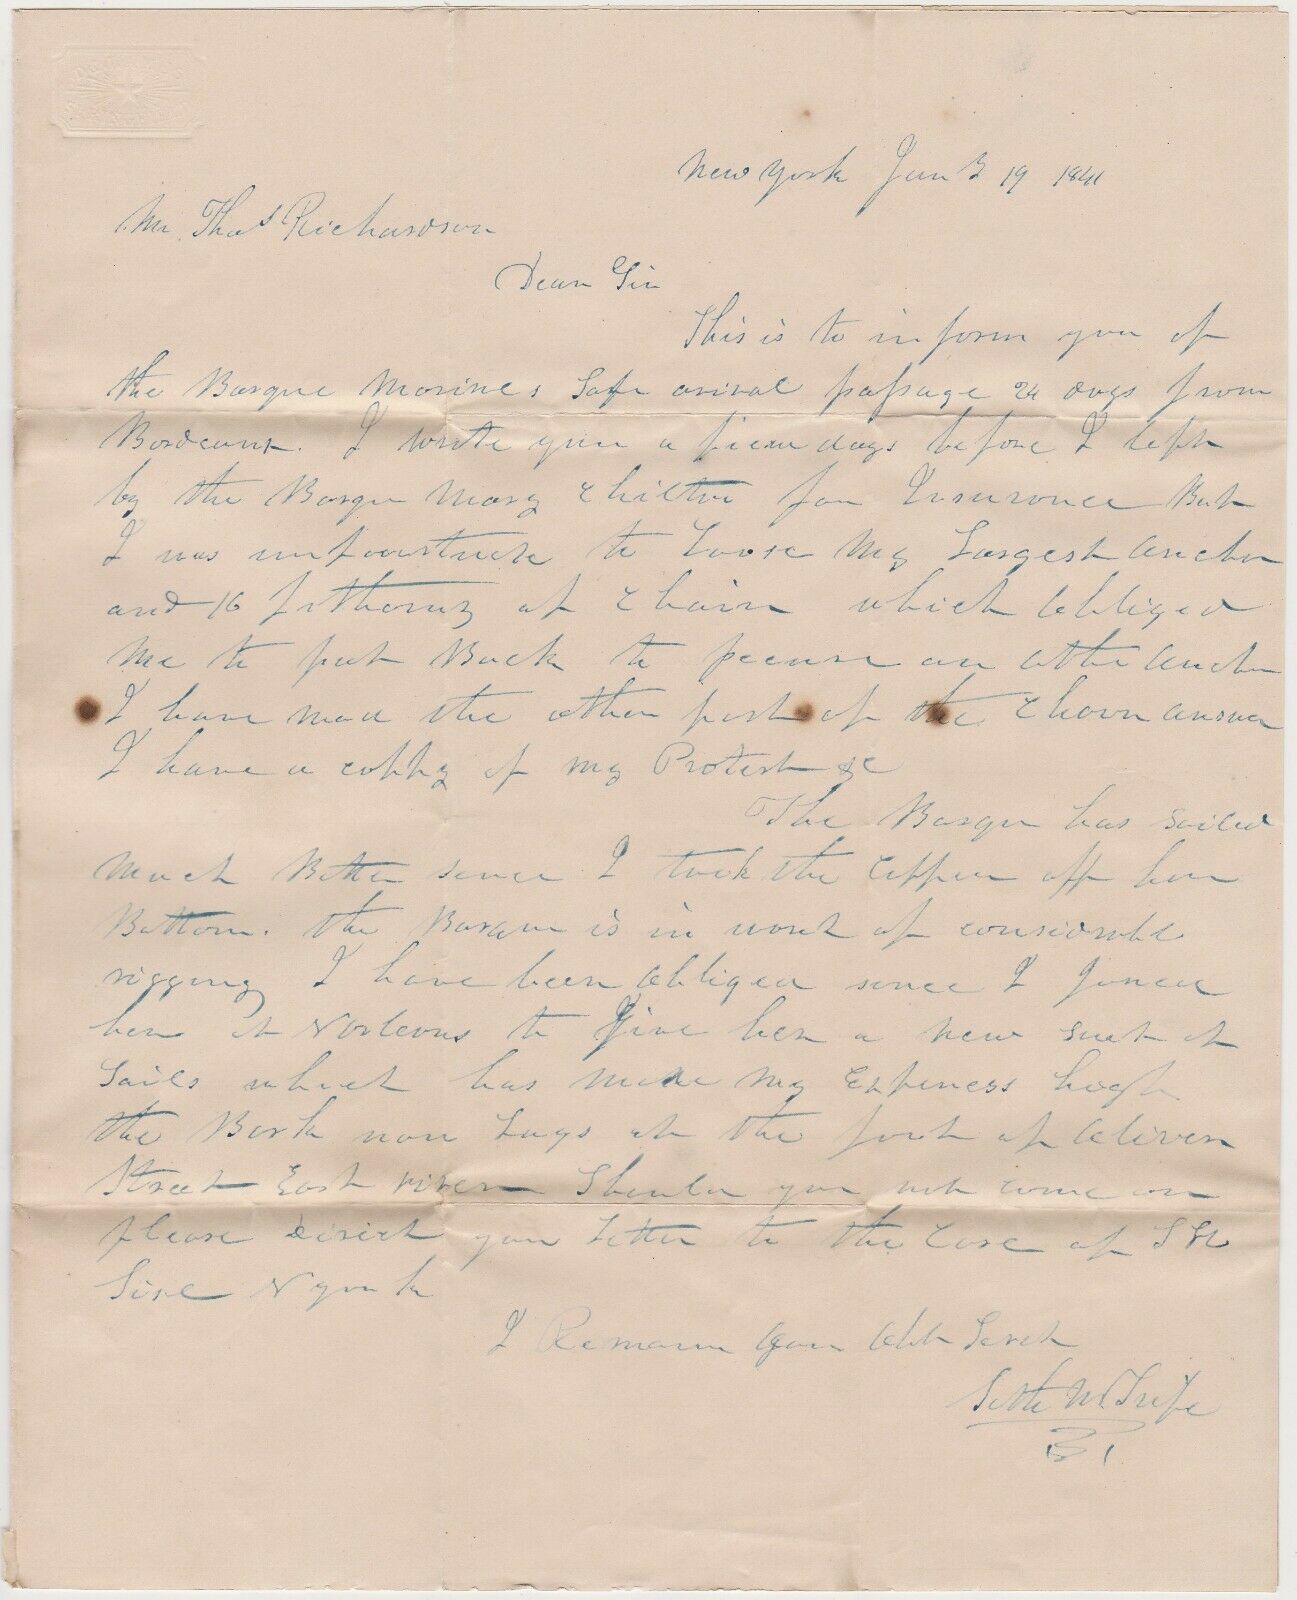 New York Jany 19 1841
Mr. Thos Richardson
Dear Sir
This is to inform you of
the Barque Marines Safe arival passage 24 days from
Bordeaux. I wrote you a fiew days before I left
by the Barque Mary Chilton for Insurance But
I was unfourtunete to Loose My Largest anchor
and 16 fathomz of Chain which Obliged
Me to put Back to pecure an other anchor
I have mad the other part of the Chain answer
I have a coppy of my Protest &c
The Barque has Sailed
Much Better sence I took the Copper off her
Bottom. the Barque is in want of considrable
rigging I have been Obliged sence I Joined
her at NOrleans to Give her a new Suet of
Sails which has made My Expences high
the Bark now Lays at the foot of Oliver
Street East river Should you not come on
please direct your Letter to the Care of
N york
I Remain your Obt Servt
Seth